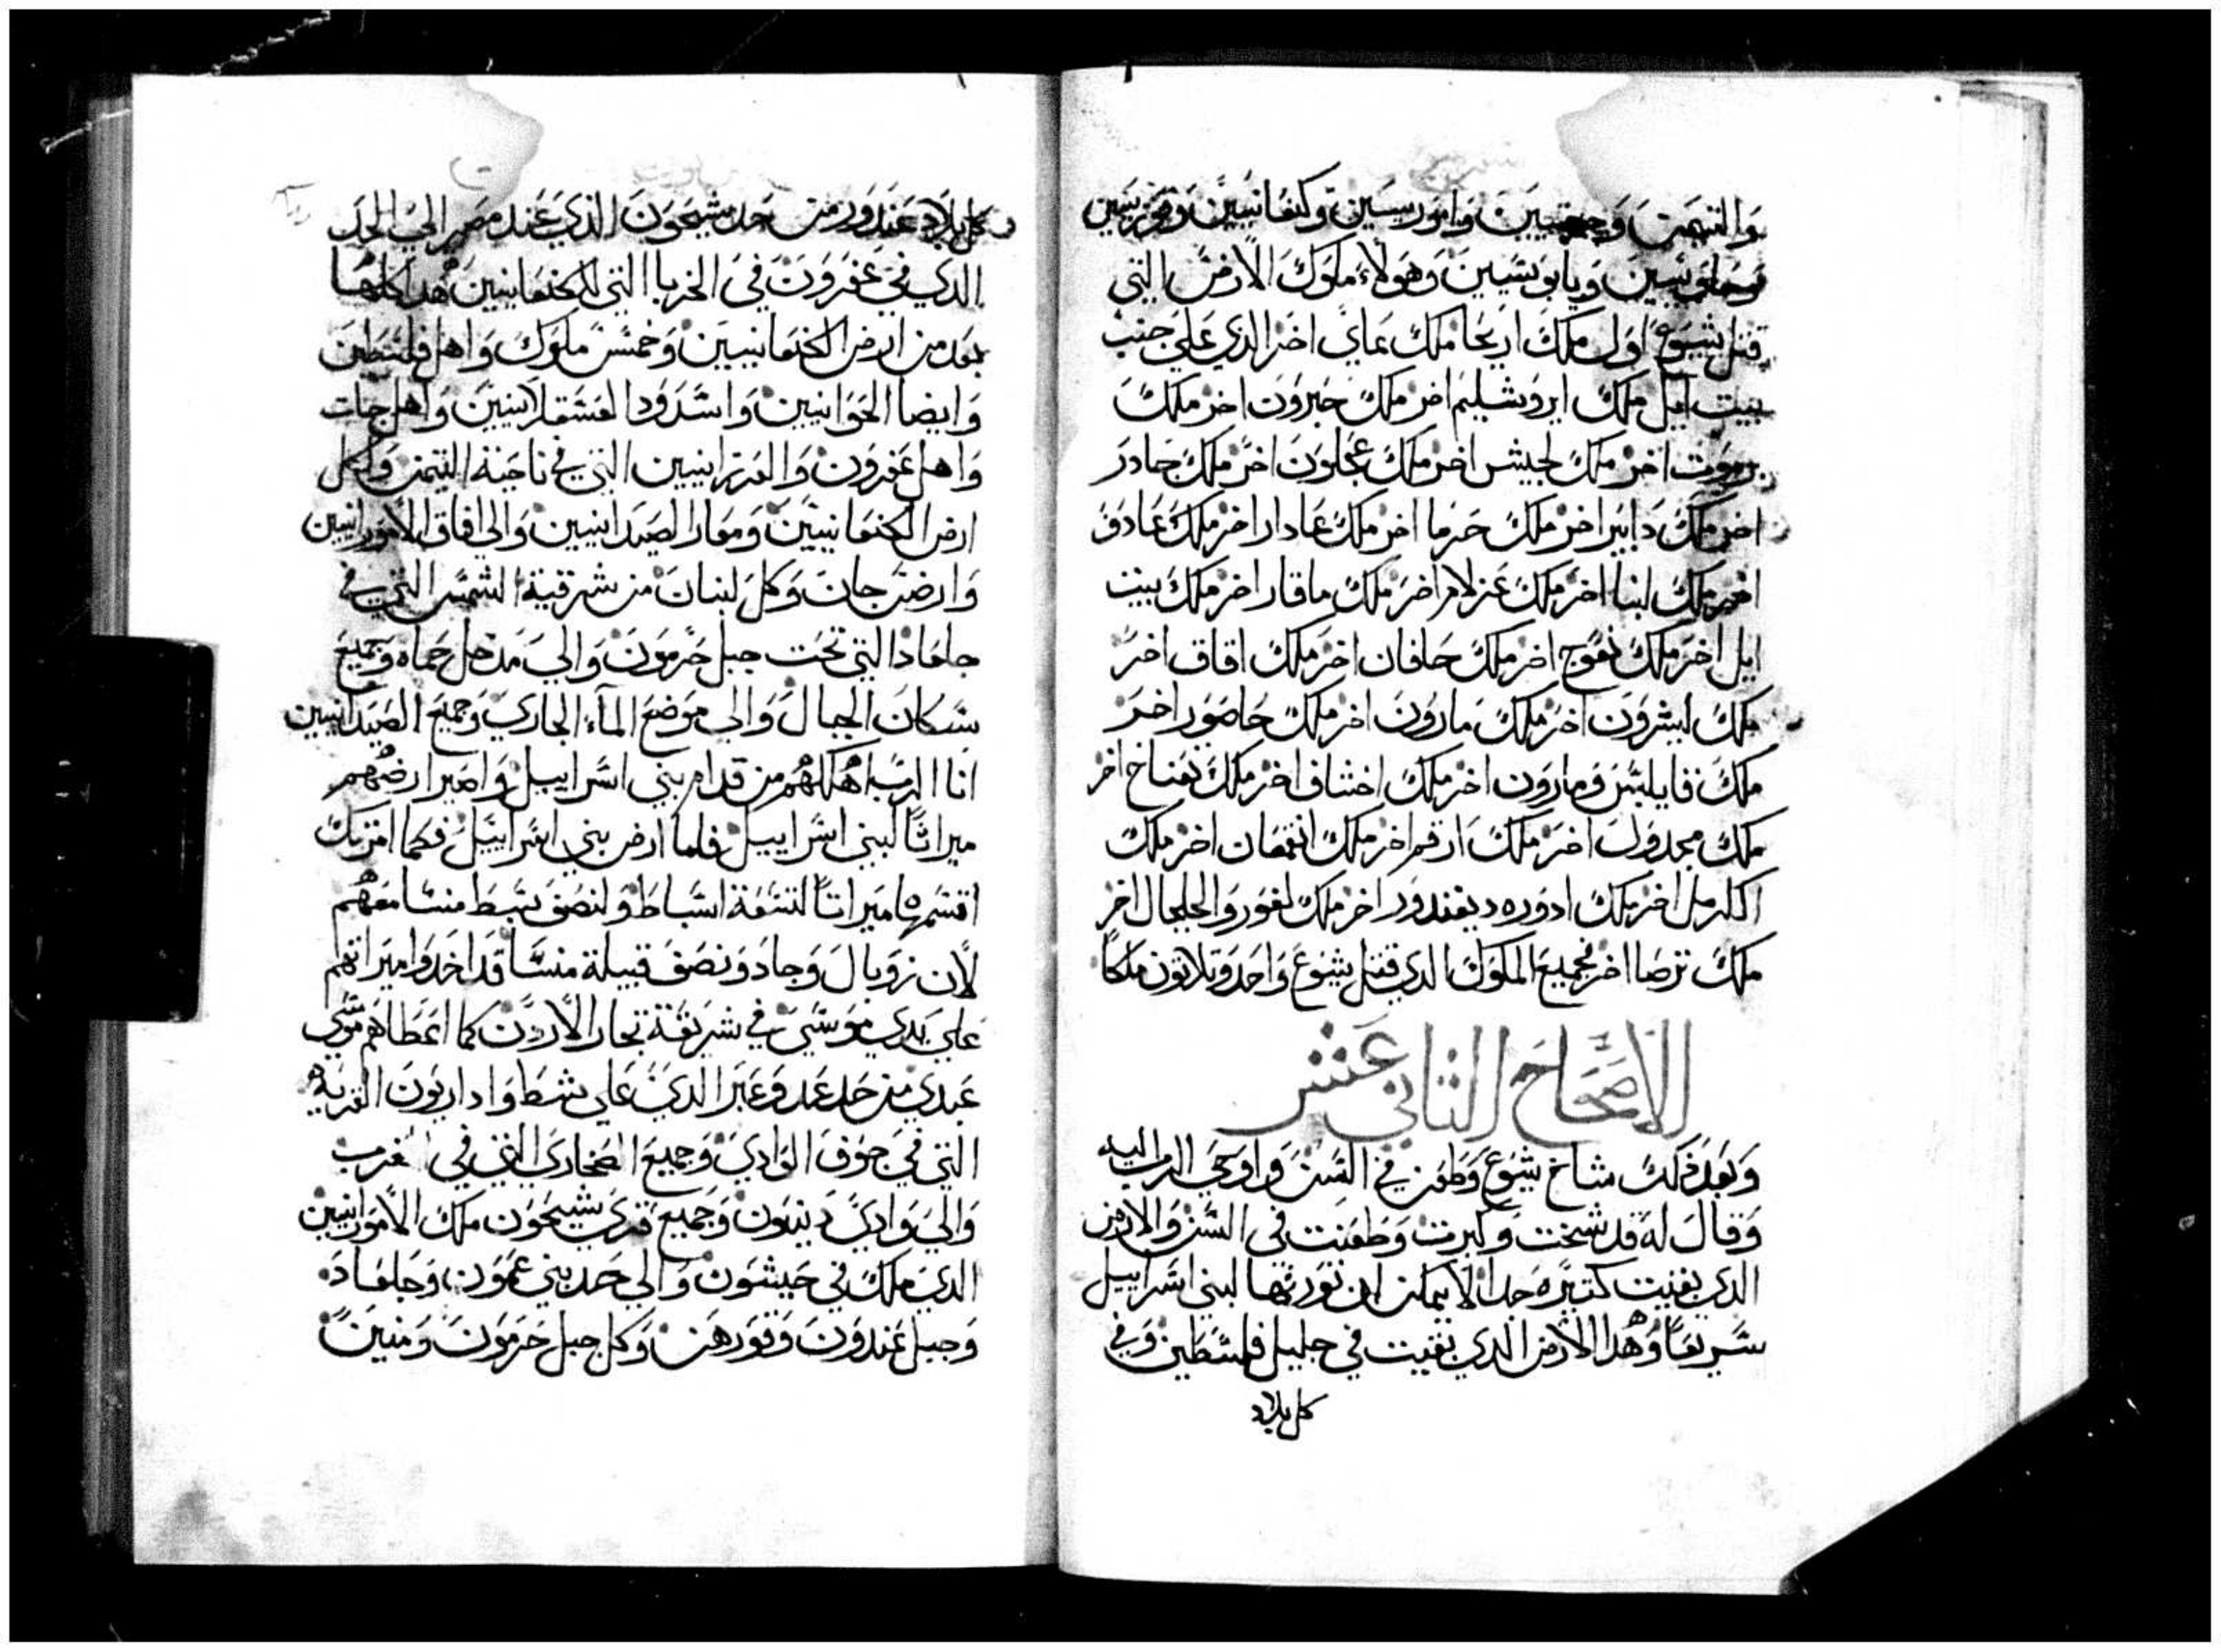 والتيمن وحيثيين واموريسيين وكنعانيين وفرزيسيين
وحاويسيين ويابوسيين وهولاء ملوك الارض التي
قتل يشوع اول ملك اريحا ملك عاي اخر الذي علي جنب
بيت ايل ملك ايروشليم اخر ملك حبرون اخر ملك
يرموت اخر ملك لجيش اخر ملك عجلون اخر ملك جادر
اخر ملك دابير اخر ملك حرما اخر ملك عادار اخر ملك عادق
اخر ملك لبنا اخر ملك عزلام اخر ملك ماقار اخر ملك بيت
ايل اخر ملك نفوج اخر ملك حافان اخر ملك افاق اخر
ملك ليشرون اخر ملك مارون اخر ملك حاصور اخر
ملك فايلبس ومارون اخر ملك اخشاف اخر ملك تعناخ اخر
ملك مجدول اخر ملك ارقم اخر ملك انقعان اخر ملك
الكرمل اخر ملك ادوره ديفندور اخر ملك لغور والجلجال اخر
ملك ترصا اخر فجميع الملوك الذي قتل يشوع واحد وتلاتون ملكاً
الاصحاح الثاني عشر
وبعد ذلك شاخ يشوع وطعن في السن واوحي الرب اليه
وقال له قد شخت وكبرت وطعنت في السن والارض
الذي بقيت كتيره جداً لا يمكن ان تورثها لبني اسراييل
سريعاً وهذا الارض الذي بقيت في جليل فلسطين وفي
كل بلاد
وكل بلاد عندور من حد شيحون الذي عند مصر الي الحد
الذي في عفرون في الخربا التي للكنعانيين هذا كلها
بعد من ارض الكنعانيين وخمس ملوك واهل فلسطين
وايضا الحوانيين واشدود العسقلانيين واهل جات
واهل عفرون والعرزانيين التي في ناحية التيمن ولكل
ارض الكنعانيين ومعار الصيدانيين والي افاق الامورانيين
وارض جان وكل لبنان من شرقية الشمس التي في
جلعاد التي تحت جبل حرمون والي مدخل حماه وجميع
سكان الجبال والي موضع الماء الجاري وجميع الصيدانيين
انا الرب اهلكهم من قدام بني اسراييل واصير ارضهم
ميراثاً لبني اسراييل فلما ارض بني اسراييل فكما امرتك
اقسمها ميراتاً لتسعة اسباط ولنصف سبط منسا معهم
لان روبال وجاد ونصف قبيلة منسا قد اخدوا ميراتهم
علي يدي موسي في شريقة تجار الاردن كما اعطاهم موسي
عبدي من حد عدوعبر الذي علي شط واد اربون القرية
التي في جوف الوادي وجميع الصحاري التي في الغرب
والي وادي ديبون وجميع قري شيحون ملك الامورانيين
الذي ملك في حبشون والي حد بني عمون وجلعاد
وجبل عندون وقورهن وكل جبل حرمون ومنين